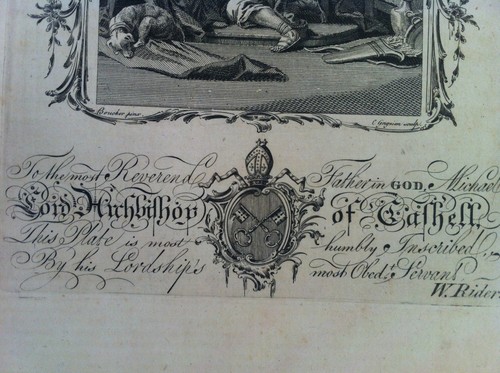 Boucher pinx.
C. Grignion sculp.
To the most Reverend Father in GOD, Michael
Lord Archbishop of Cashell,
This Plate is most humbly Inscribed,
By his Lordship's most Obed.t Servant
W. Rider